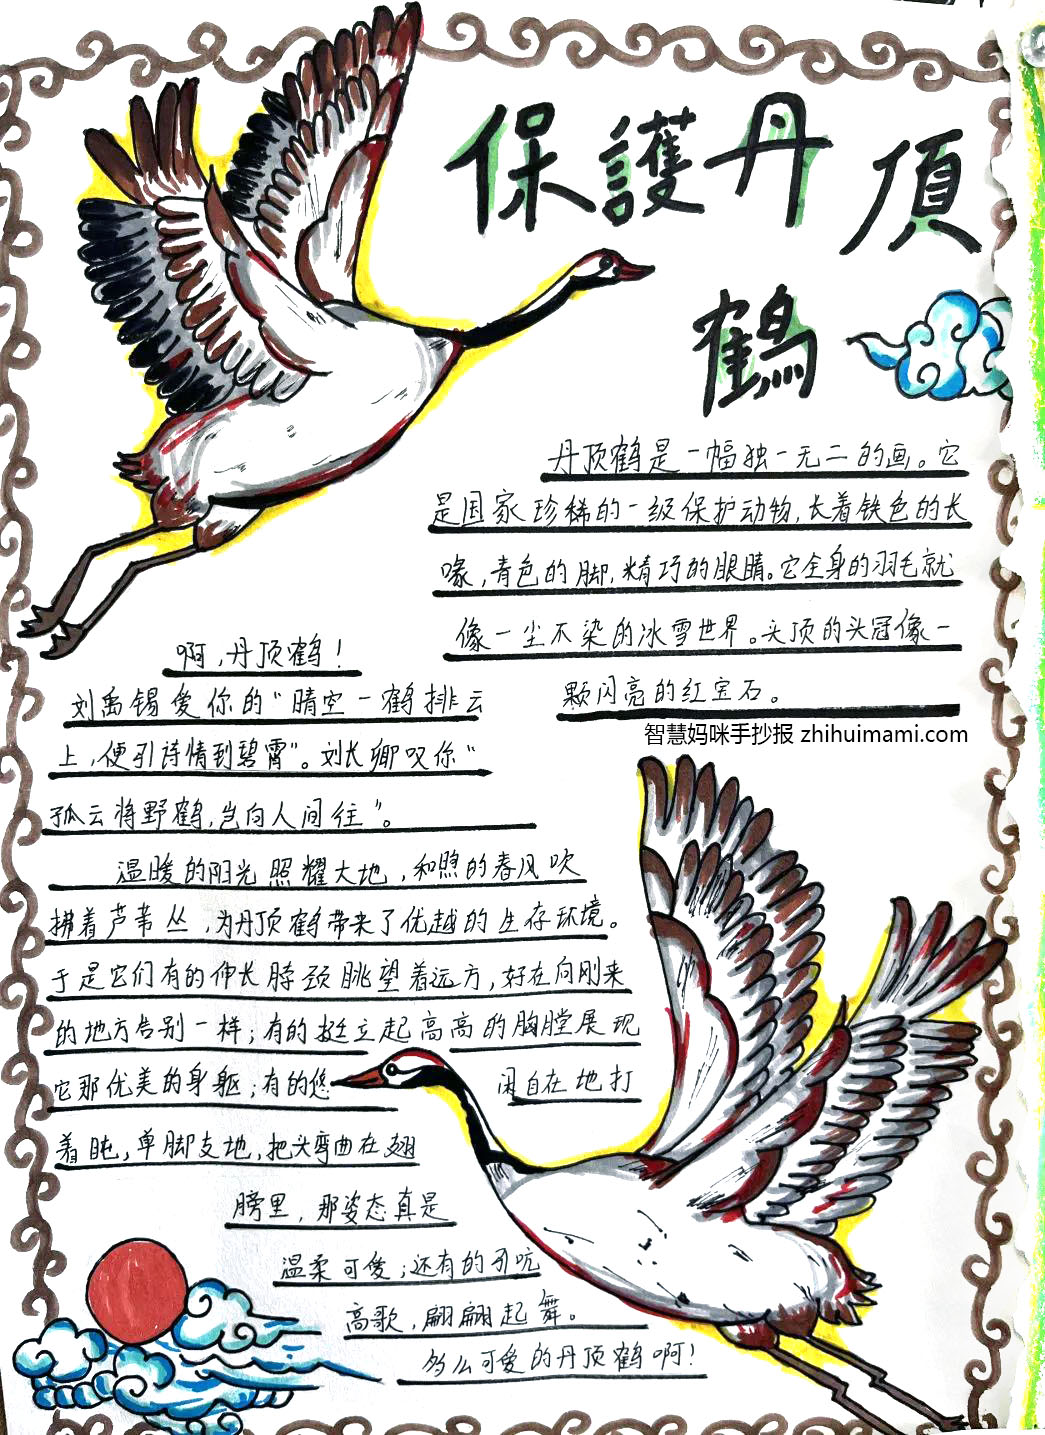 保護丹頂
鶴
丹顶鹤是一幅独一无二的画。它
是国家珍稀的一级保护动物,长着铁色的长
喙,青色的脚,精巧的眼睛。它全身的羽毛就
像一尘不染的冰雪世界。头顶的头冠像一
颗闪亮的红宝石。
智慧妈咪手抄报 zhihuimami.com
啊,丹顶鹤!
刘禹锡爱你的“晴空一鹤排云
上,便引诗情到碧霄”。刘长卿叹你“
孤云将野鹤,岂向人间住”。
温暖的阳光照耀大地,和煦的春风吹
拂着芦苇丛,为丹顶鹤带来了优越的生存环境。
于是它们有的伸长脖颈眺望着远方,好在向刚来
的地方告别一样;有的挺立起高高的胸膛展现
它那优美的身躯;有的悠闲自在地打
着盹,单脚支地,把头弯曲在翅
膀里,那姿态真是
温柔可爱;还有的引吭
高歌,翩翩起舞。
多么可爱的丹顶鹤啊!